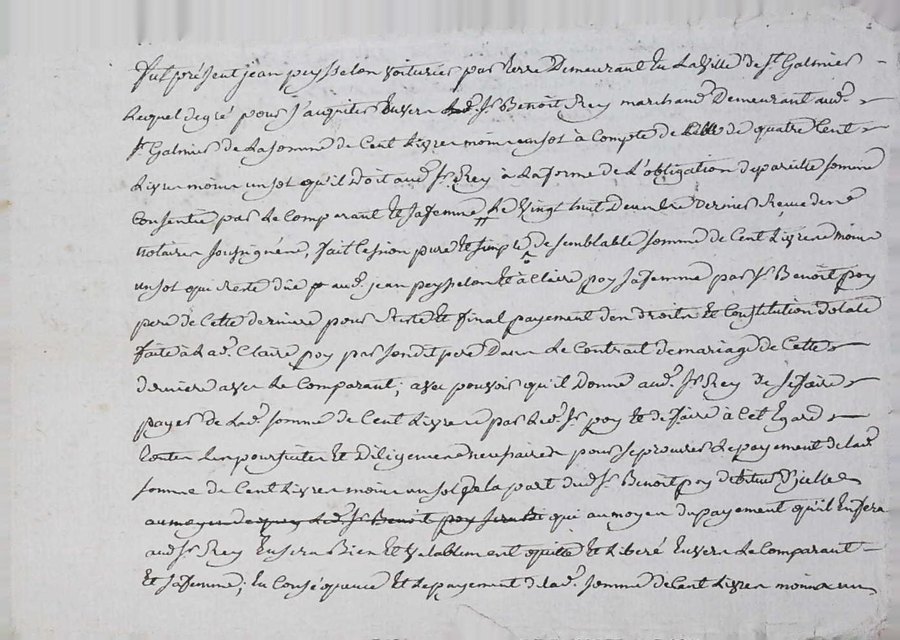 fut présent jean peysselon voiturier par terre Demeurant En La Ville de St. Galmier
Lequel de gré pour s'aquiter Envers Led. Sr. Benoît Rey marchand Demeurant aud.
St. Galmier de La somme de Cent Livres moins un sol à Compte de celle de quatre Cent
Livres moins un sol qu'il Doit aud. Sr. Rey à La forme de L'obligation de pareille somme
Consentie par Le Comparant Et sa femme Le Vingt huit Dernier Reçue
notaires soussignés, fait Cession pure Et simple de semblable somme de Cent Livres moins
un sol qui Reste düe aud. jean peysselon Et à Claire poy sa femme par Sr. Benoît poy
pere de Cette derniere pour Reste Et final payement des droits Et Constitution dotale
faite à Lad. Claire poy par son dit pere Dans Le Contrat de mariage de Cette
derniere avec Le Comparant; avec pouvoir qu'il Donne aud. Sr. Rey de se faire
payer de Lad. somme de Cent Livres par Led. Sr. poy Et de faire à Cet Egard
toutes Les poursuites Et Diligences necessaires pour se procurer Le payement de Lad.
somme de Cent Livres moins un sol de La part dud. Sr. Benoît poy debiteur D'icelle
au moyen de quoy Led. Sr. Benoît poy sera qui au moyen du payement qu'il En fera
aud. Sr. Rey En sera Bien Et Valablement quitte Et Libéré Envers Le Comparant
Et sa femme; En Conséquence Et Le payement de Lad. somme de Cent Livres moins un